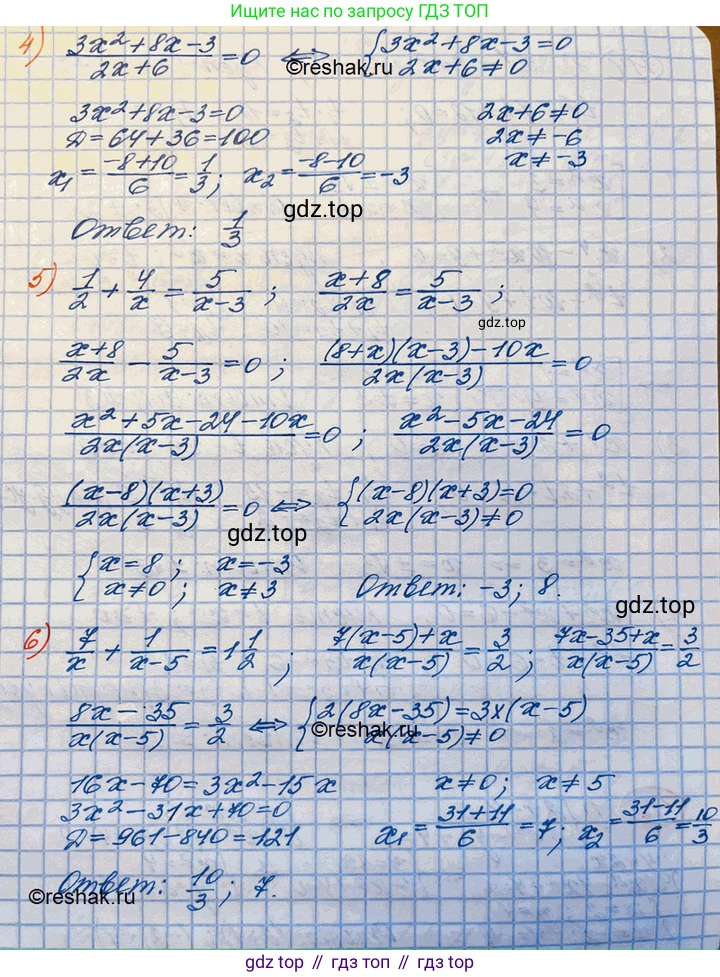 Ищите нас по запросу ГДЗ ТОП
4) (3x²+8x-3)/(2x+6) = 0 ⟺ {3x²+8x-3=0
2x+6≠0
©reshak.ru
3x²+8x-3=0 2x+6≠0
D=64+36=100 2x≠-6
x₁=(-8+10)/6=1/3; x₂=(-8-10)/6=-3 x≠-3
gdz.top
Ответ: 1/3
5) 1/2 + 4/x = 5/(x-3); (x+8)/2x = 5/(x-3);
gdz.top
(x+8)/2x - 5/(x-3) = 0; ((8+x)(x-3)-10x)/(2x(x-3)) = 0
(x²+5x-24-10x)/(2x(x-3)) = 0; (x²-5x-24)/(2x(x-3)) = 0
(x-8)(x+3)/(2x(x-3)) = 0 ⟺ {(x-8)(x+3)=0
2x(x-3)≠0
gdz.top
{x=8; x=-3
x≠0; x≠3 Ответ: -3; 8.
gdz.top
6) 7/x + 1/(x-5) = 1 1/2; (7(x-5)+x)/(x(x-5)) = 3/2; (7x-35+x)/(x(x-5)) = 3/2
(8x-35)/(x(x-5)) = 3/2 ⟺ {2(8x-35)=3x(x-5)
x(x-5)≠0
©reshak.ru
16x-70=3x²-15x x≠0; x≠5
3x²-31x+70=0
D=961-840=121 x₁=(31+11)/6=7; x₂=(31-11)/6=10/3
Ответ: 10/3; 7.
©reshak.ru
gdz top // гдз топ // gdz top // гдз топ